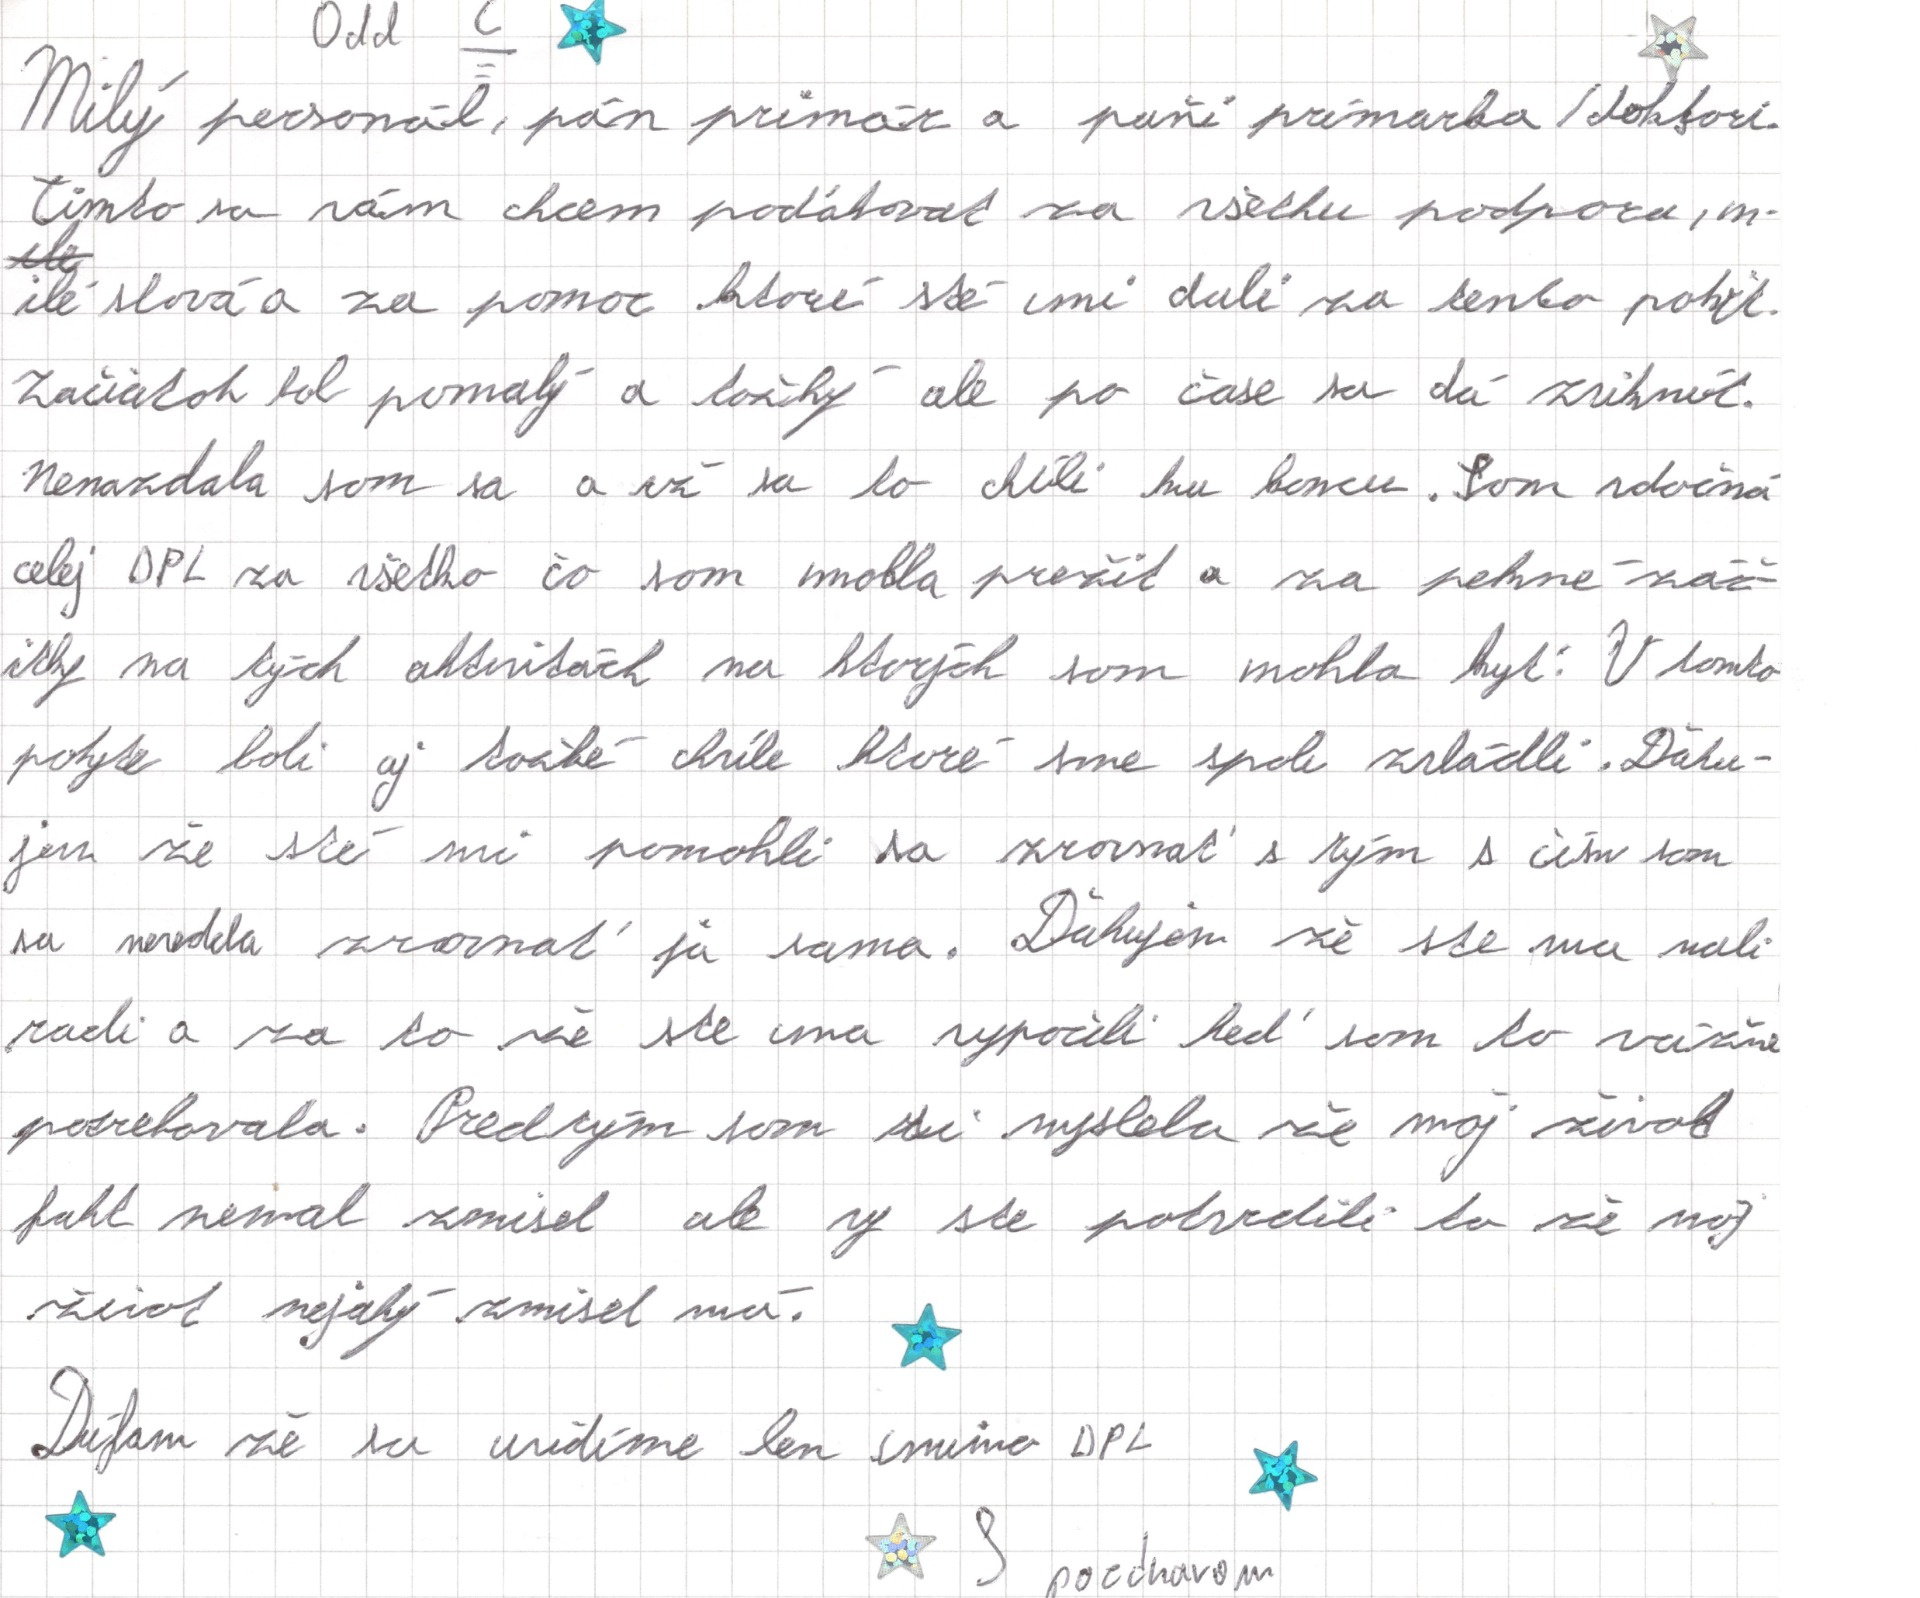 Odd C
Milý personál, pán primár a pani primarka / doktori.
Timto sa vám chcem poďakovať za všetku podporu, m-
ilé slová a za pomoc ktoré sté mi dali za tento pobyt.
Začiatok bol pomalý a ťažký ale po čase sa dá zviknúť.
Nenazdala som sa a už sa to chíli ku koncu. Som vdočná
celej DPL za všetko čo som mohla prežiť a za pekné záž-
itky na tých aktivitách na ktorých som mohla byť. V tomto
pobyte boli aj ťažké chvíle ktoré sme spolu zvládli. Ďaku-
jem že sté mi pomohli sa zrovnať s tým s čím som
sa nevedela zrovnať já sama. Ďakujem že ste ma mali
radi a za to že ste ma vypočili keď som to vážne
potrebovala. Predtým som si myslela že mój život
fakt nemal zmisel ale vy ste potvrdili to že mój
život nejaký zmisel má.
Dúfam že sa uvidíme len mimo DPL
S pozdravom